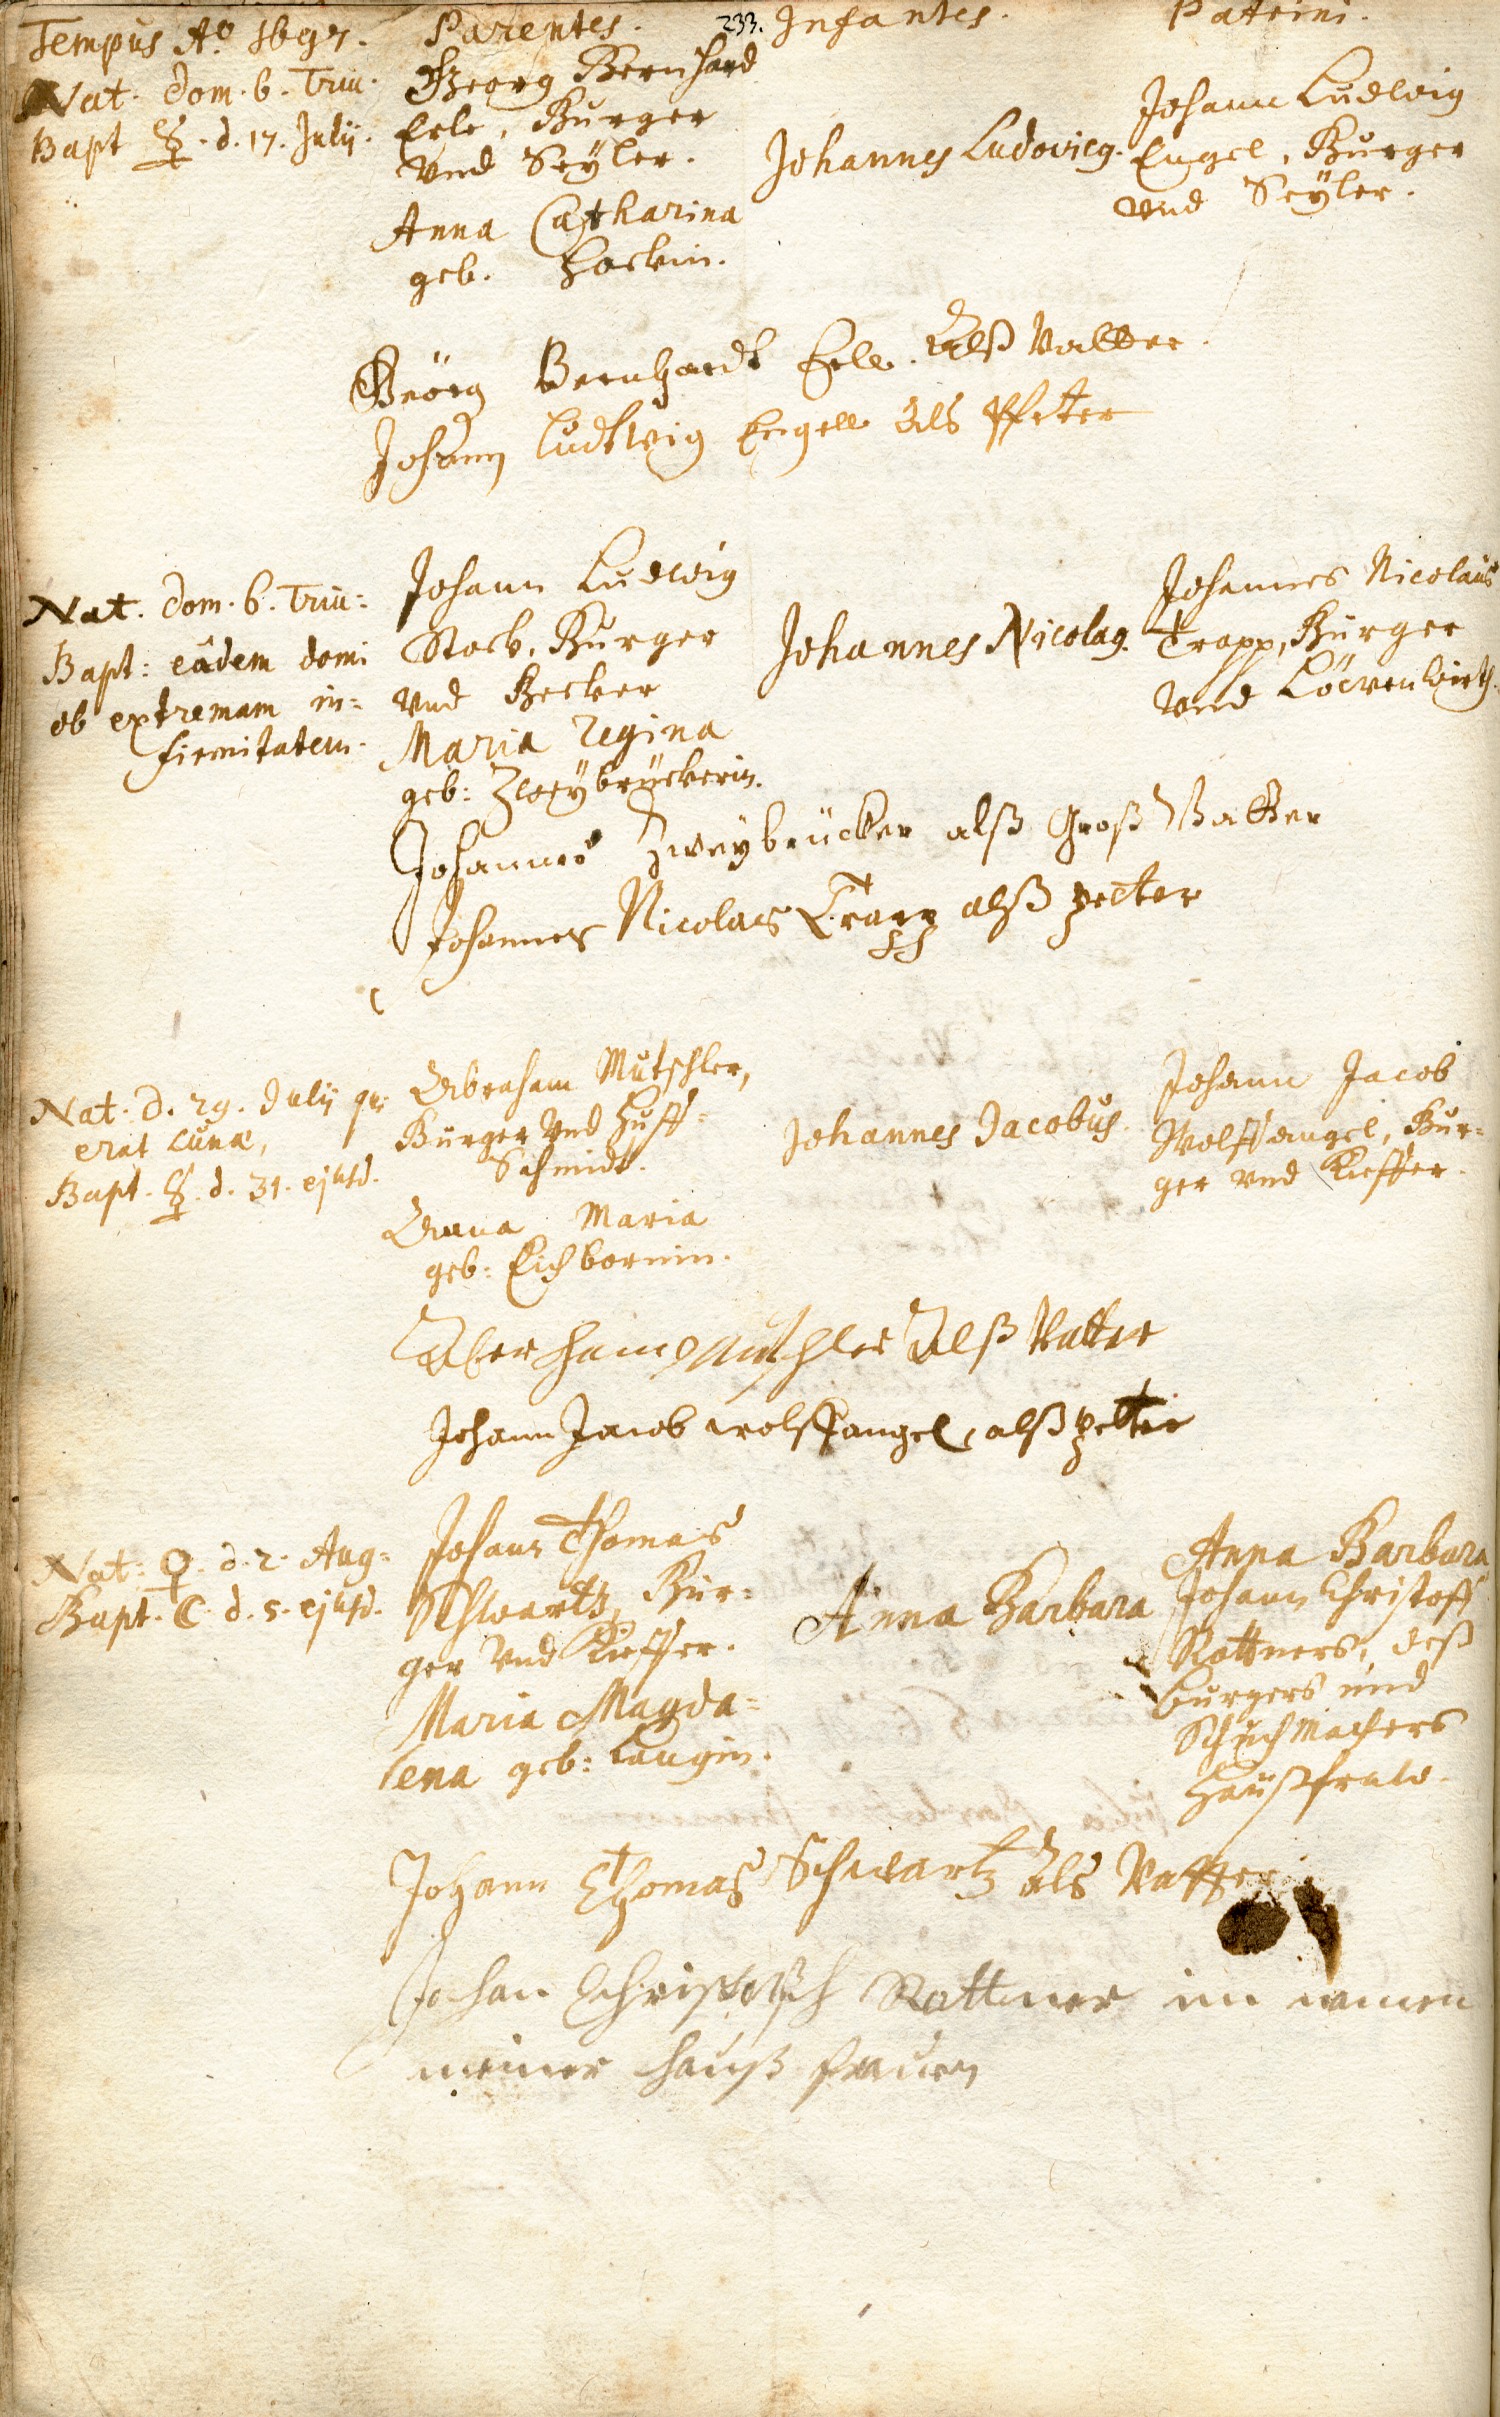 Tempus Aº 1697. Parentes. 233. Infantes. Patrini.
Nat. dom. 6. Trin.
Bapt ☿. d. 17. Julij.
Georg Bernhard
Erle, Burger
vnd Seÿler.
Anna Catharina
geb. Hockin.
Johannes Ludovicq.
Johann Ludwig
Engel, Burger
vnd Seÿler.
Geörg Bernhardt Erle. Alß Vatter.
Johann Ludtwig Engell Als Pfetter
Nat. dom. 6. Trin:
Bapt: eâdem domi
ob extremam in=
firmitatem.
Johann Ludwig
Stock, Burger
vnd Becker
Maria Regina
geb: Zweÿbrückerin.
Johannes Nicolaq.
Johannes Nicolaus
Trapp, Burger
vnd Löwenwirth.
Johannes Zweÿbrücker alß Groß Vatter
Johannes Nicolaus Trapp alß petter
Nat. d. 29. Julij qui
erat Lunæ,
Bapt. ☿. d. 31. ejusd.
Abraham Mutschler,
Burger vnd Huff=
Schmidt.
Anna Maria
geb: Eichbornin.
Johannes Jacobus.
Johann Jacob
Wolffangel, Bur=
ger vnd Kieffer.
Aberham Mutschler Alß Vatter
Johann Jacob wolffangel, alß petter
Nat: ♀. d. 2. Aug=
Bapt. ☾. d. 5. ejusd.
Johann Thomas
Schwartz, Bur=
ger vnd Kieffer.
Maria Magda=
lena geb: Langin.
Anna Barbara
Anna Barbara
Johann Christoff
Rottners, deß
burgers und
Schuchmachers
Haußfraw.
Johann Thomas Schwartz Als Vatter
Johan Christoff Rottner im namen
meiner hauß frauen